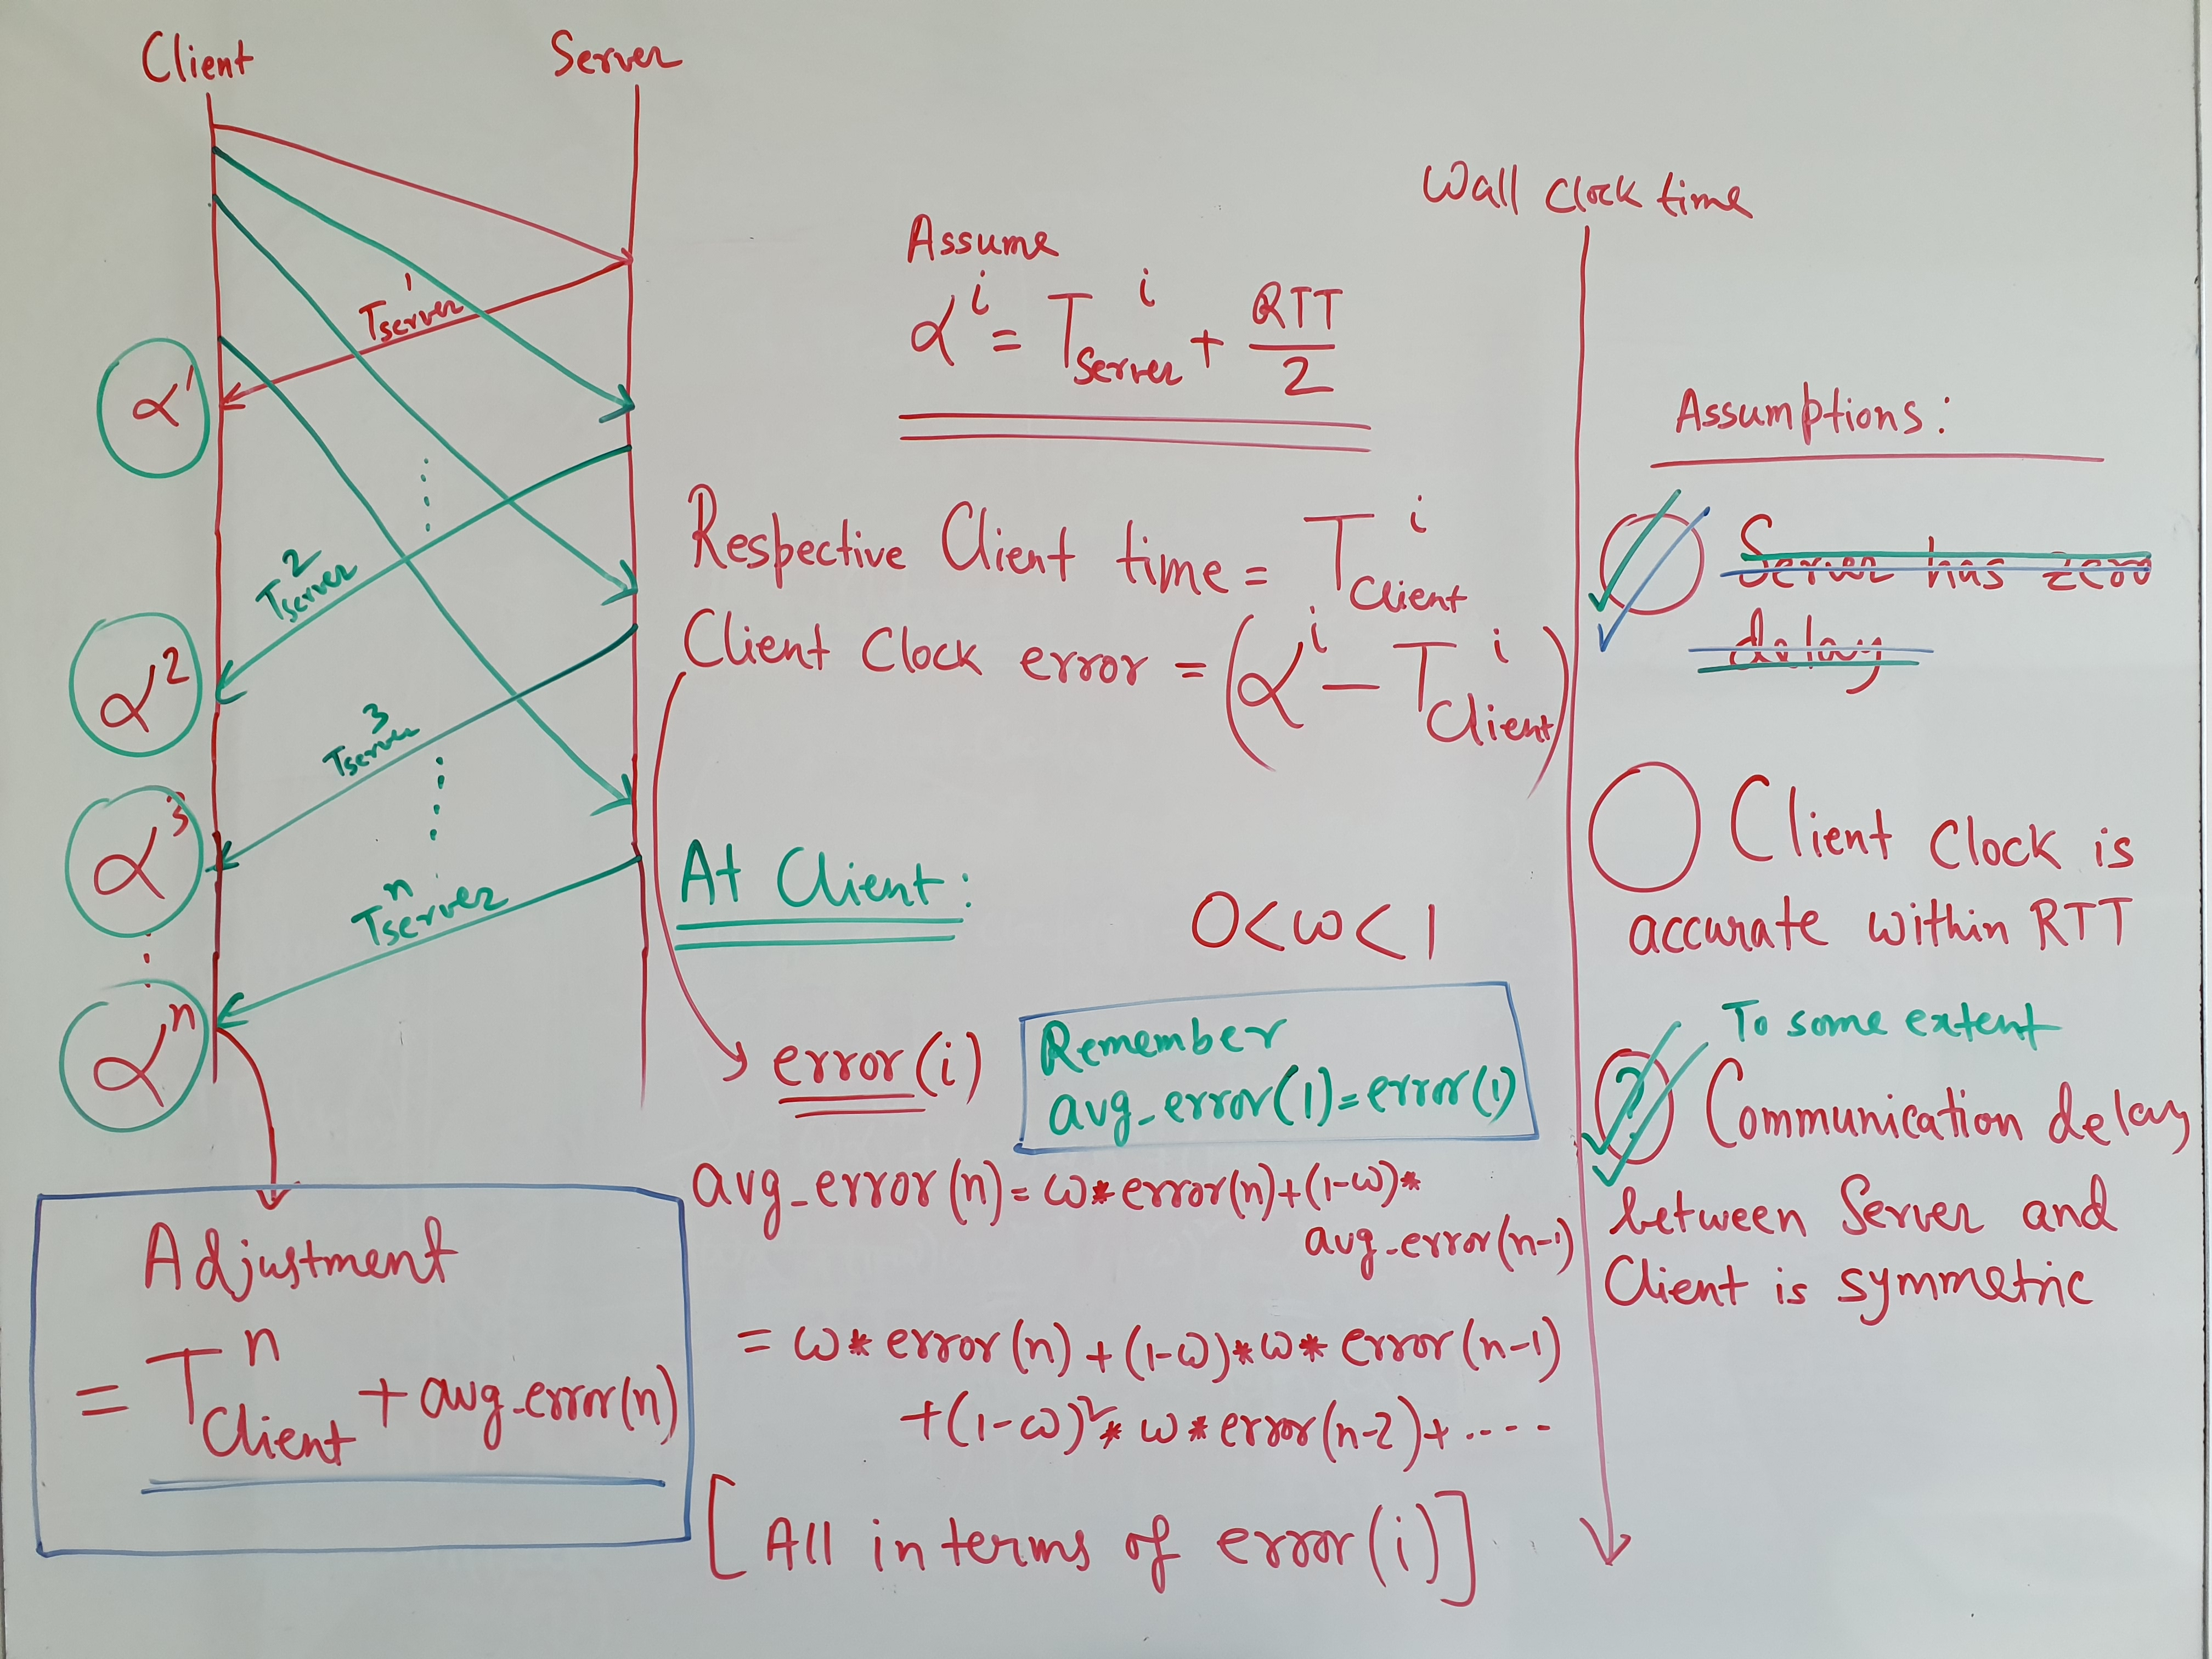 Client
Server
T¹server
α¹
T²server
α²
T³server
α³
Tⁿserver
αⁿ
Adjustment
= Tⁿclient + avg_error(n)
Assume
αⁱ = Tⁱserver + RTT/2
Respective Client time = Tⁱclient
Client Clock error = (αⁱ − Tⁱclient)
At Client:
0<ω<1
error(i)
Remember
avg_error(1)=error(1)
avg_error(n) = ω*error(n)+(1-ω)*
avg_error(n-1)
= ω * error(n) + (1-ω)*ω* error(n-1)
+(1-ω)²* ω * error(n-2)+ ....
[All in terms of error(i)]
Wall Clock time
Assumptions:
Server has zero
delay
Client Clock is
accurate within RTT
To some extent
? Communication delay
between Server and
Client is symmetric